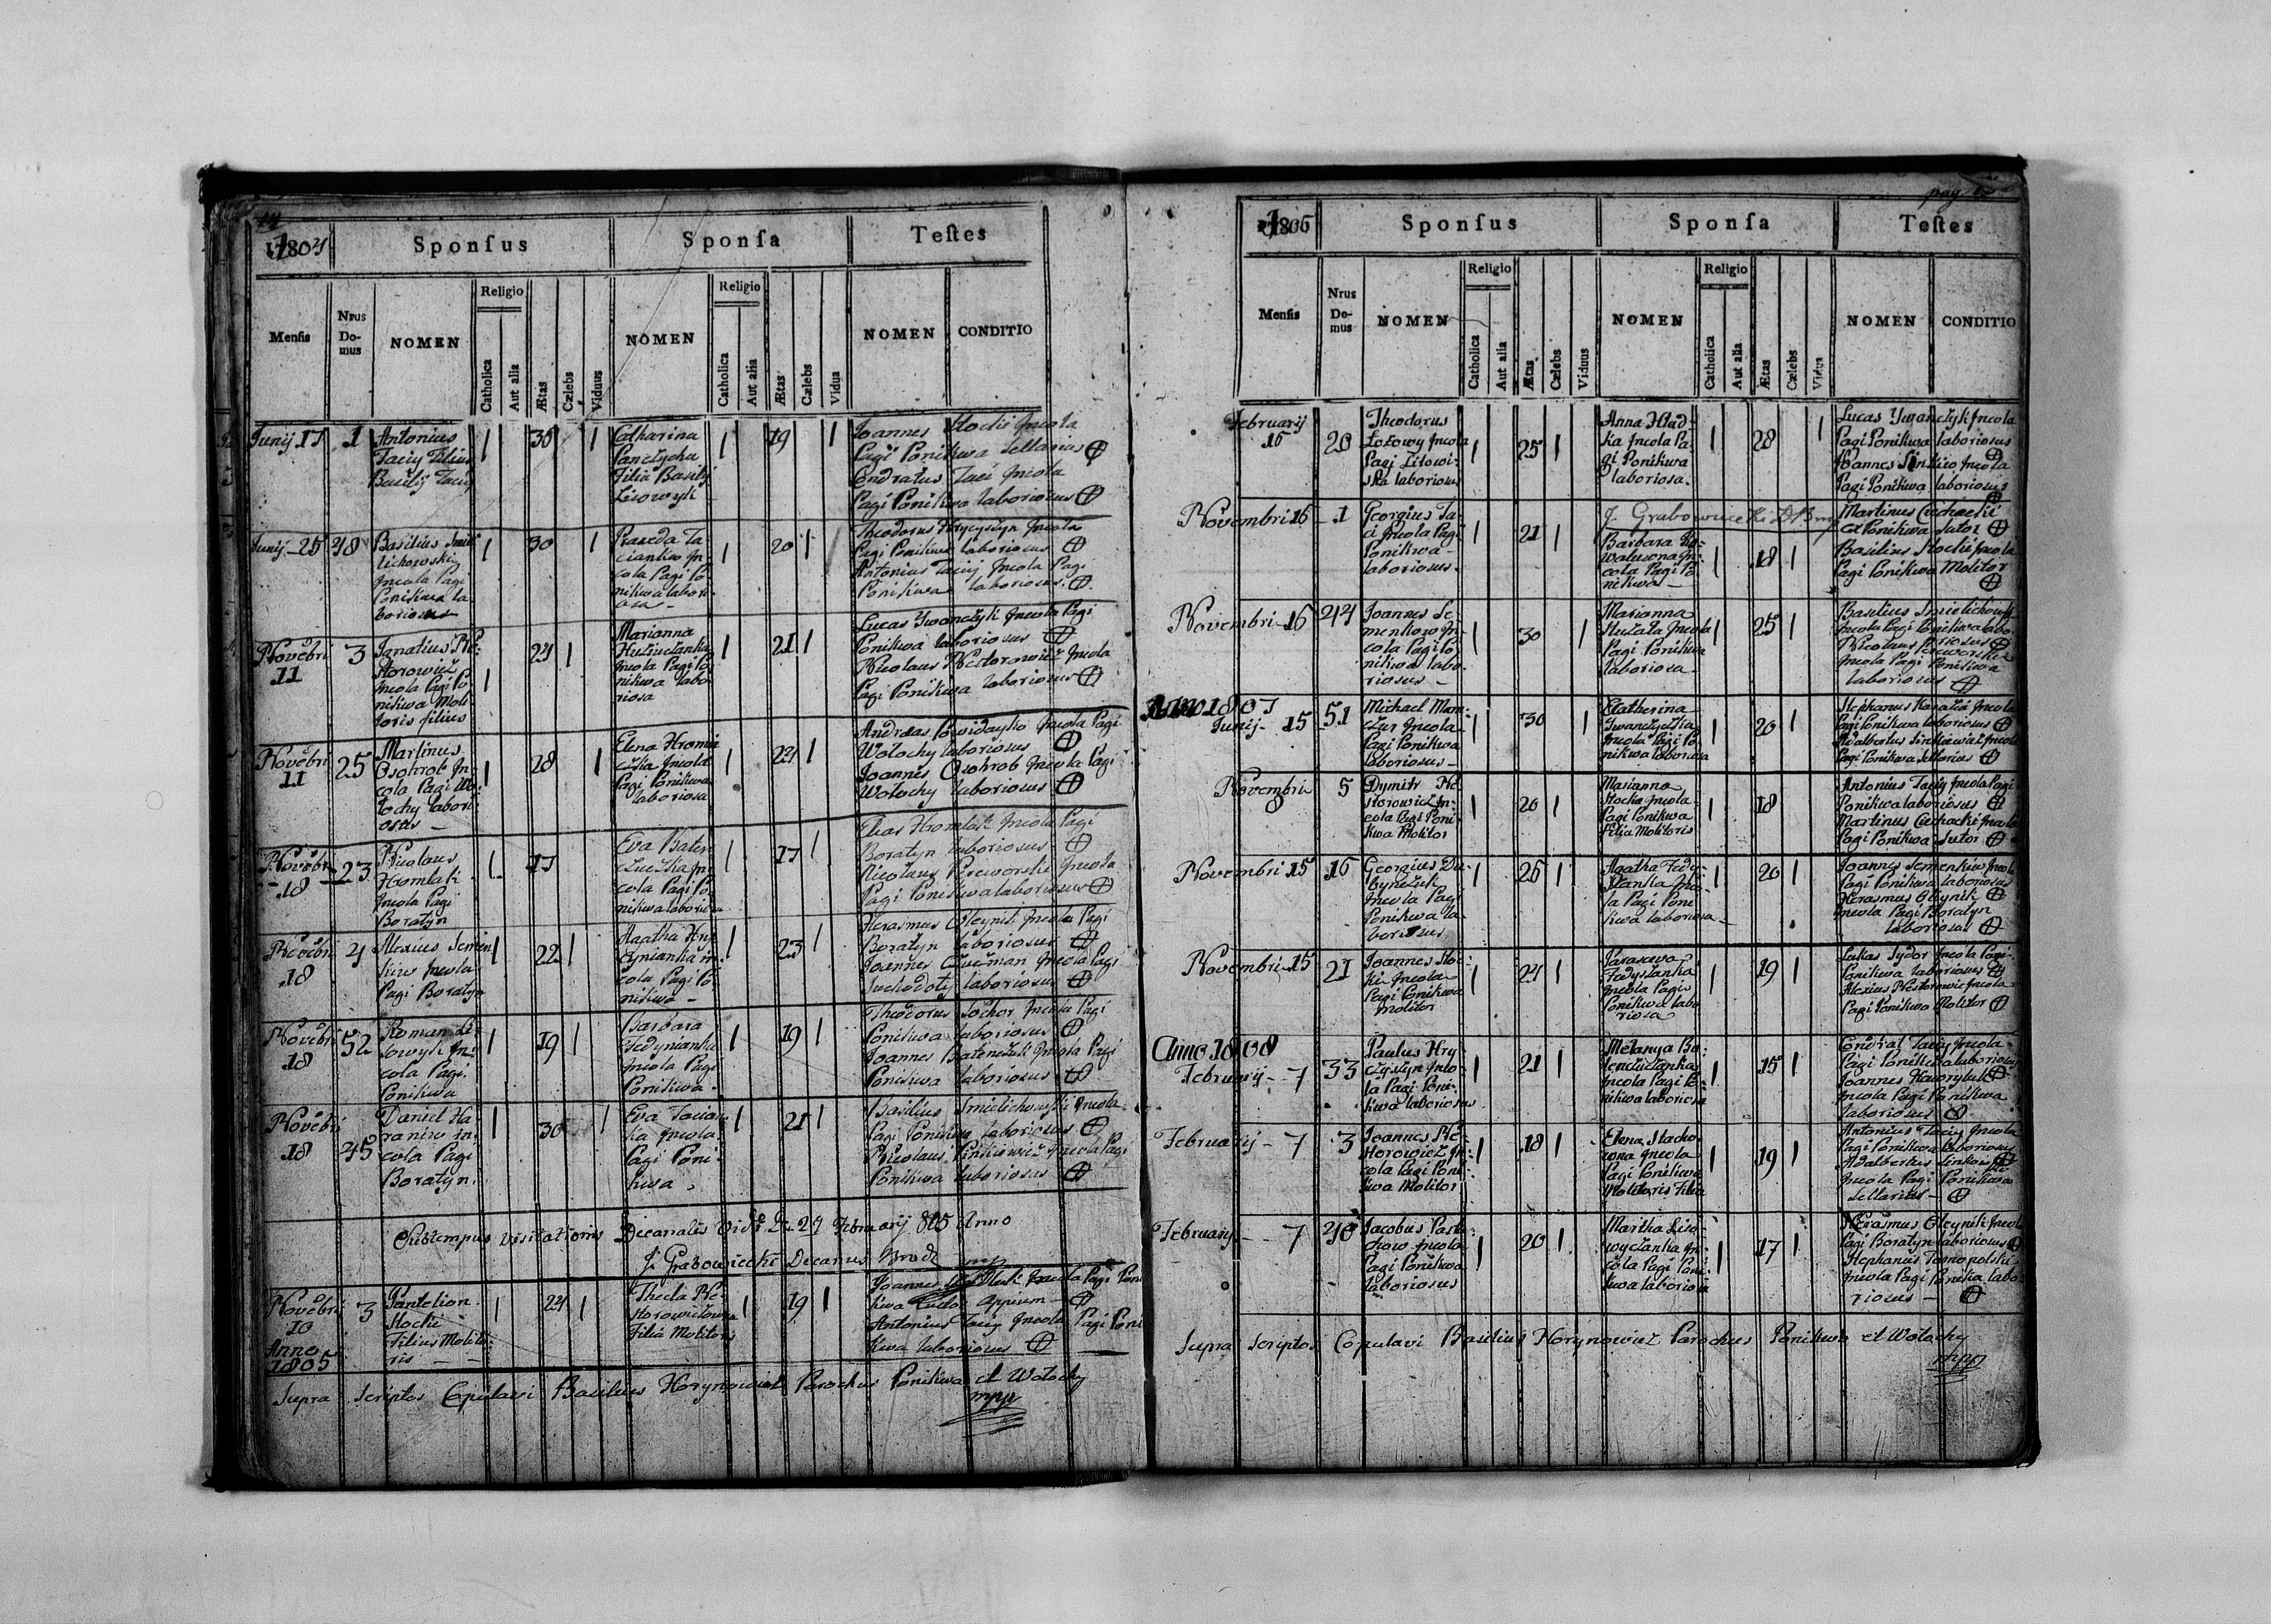 1804
Sponſus
Sponſa
Teſtes
Menſis
Nrus
Do-
mus
NOMEN
Religio
Catholica
Aut alia
Ætas
Cælebs
Viduus
NOMEN
Religio
Catholica
Aut alia
Ætas
Cælebs
Vidua
NOMEN
CONDITIO
Junij 17
1
Antonius
Taciy Filius
Basilij Taciy
30
Catharina
Filia Basilij
Lisowyk
19
Joannes Stockÿ Incola
Pagi Ponikwa Sellarius
Condratus Taci Incola
Pagi Ponikwa laboriosus
Junij 25
48
Basilius Smie
lichowski
Incola Pagi
Ponikwa la
boriosus
30
Praxeda Ta
cianka In
cola Pagi Po
nikwa labori
osa
20
Theodorus Hrycyszyn Incola
Pagi Ponikwa laboriosus
Antonius Taciij Incola Pagi
Ponikwa laboriosus
Novēbri
11
3
Ignatius Ne-
storowicz
Incola Pagi Po
nikwa Moli
toris filius
24
Marianna
Incola Pagi Po
nikwa labo
riosa
21
Lucas Ywanczyk Incola Pagi
Ponikwa laboriosus
Nicolaus Nestorowicz Incola
Pagi Ponikwa laboriosus
Novēbri
11
25
Martinus
Osohrob In-
cola Pagi Wo-
łochy labori-
osus
28
Elena
Incola
Pagi Ponikwa
laboriosa
24
Andreas Powidayko Incola Pagi
Wołochy laboriosus
Joannes Osohrob Incola Pagi
Wołochy laboriosus
Novēbri
18
23
Nicolaus
Homlak
Incola Pagi
Boratyn
17
Eva Baten
czuczka In
cola Pagi Po
nikwa laboriosa
17
Elias Homlak Incola Pagi
Boratyn laboriosus
Nicolaus Pereworski Incola
Pagi Ponikwa laboriosus
Novēbri
18
4
Alexius Semen
kiw Incola
Pagi Boratyn
22
Agatha Hry
cynianka in
cola Pagi Po
nikwa
23
Herasmus Oleynik Incola Pagi
Boratyn laboriosus
Joannes Incola Pagi
Suchodoły laboriosus
Novēbri
18
52
Roman Li-
sowyk In-
cola Pagi
Ponikwa
19
Barbara
Fedynianka
Incola Pagi
Ponikwa
19
Theodorus Sochor Incola Pagi
Ponikwa laboriosus
Joannes Batenczuk Incola Pagi
Ponikwa laboriosus
Novēbri
18
45
Daniel Ha-
raniw in
cola Pagi
Boratyn
30
Eva Tacian
ka Incola
Pagi Poni
kwa
21
Basilius Smielichowski Incola
Pagi Ponikwa laboriosus
Nicolaus Incola Pagi
Ponikwa laboriosus
Sub tempus visitationis Decanalis Vidi De 27 Februarij 805 Anno
J. Grabowiecki Decanus Brod mp
Novēbri
10
Anno
1805
3
Pantelion
Stockÿ
Filius Molito
ris
24
Thecla Ne-
storowiczowna
Filia Molitoris
19
Joannes Incola Pagi Poni
kwa
Antonius Taciy Incola Pagi Poni
kwa laboriosus
Supra scriptos Copulavi Basilius Horynowicz Parochus Ponikwa et Wołochy
mpp
pag
1806
Sponſus
Sponſa
Teſtes
Menſis
Nrus
Do-
mus
NOMEN
Religio
Catholica
Aut alia
Ætas
Cælebs
Viduus
NOMEN
Religio
Catholica
Aut alia
Ætas
Cælebs
Vidua
NOMEN
CONDITIO
Februarij
16
20
Theodorus
Łozowy Incola
Pagi
laboriosus
25
Anna Hład-
ka Incola Pa-
gi Ponikwa
laboriosa
28
Lucas Ywanczyk Incola
Pagi Ponikwa laboriosus
Joannes Incola
Pagi Ponikwa laboriosus
J. Grabowiecki
Novembri 16
1
Georgius Ta-
ci Incola Pagi
Ponikwa
laboriosus
21
Barbara Ko-
walusona In-
cola Pagi Po
nikwa
18
Martinus Ciechacki
Ponikwa Sutor
Basilius Stockÿ Incola
Pagi Ponikwa Molitor
Novembri 16
44
Joannes Se-
menkow In-
cola Pagi Po
nikwa labo-
riosus
30
Marianna
Incola
Pagi Ponikwa
laboriosa
25
Basilius Smielichowsk
Incola Pagi Ponikwa labo-
riosus
Nicolaus Pereworski
Incola Pagi Ponikwa
laboriosus
Anno 1807
Junij 15
51
Michael
Incola
Pagi Ponikwa
laboriosus
30
Catherina
Iwanczyczka
Incola Pagi Po
nikwa laboriosa
20
Stephanus Incola
Pagi Ponikwa laboriosus
Adalbertus Sinkiewicz Incola
Pagi Ponikwa Sellarius
Novembri
8
5
Dymitr Ne-
storowicz In-
cola Pagi Poni
kwa Molitor
20
Marianna
Stocka Incola
Pagi Ponikwa
Filia Molitoris
18
Antonius Taciy Incola Pagi
Ponikwa laboriosus
Martinus Ciechacki Incola
Pagi Ponikwa Sutor
Novembri 15
16
Georgius
Incola Pagi
Ponikwa la
boriosus
26
Agatha
Pagi Poni
kwa laboriosa
20
Joannes Semenkiw Incola
Pagi Ponikwa laboriosus
Herasmus Oleynik
Incola Pagi Boratyn
laboriosus
Novembri 15
21
Joannes Stoc-
kÿ Incola
Pagi Ponikwa
Molitor
24
Parasceva
Incola Pagi
Ponikwa labo
riosa
19
Lukas Sydor Incola Pagi
Ponikwa laboriosus
Alexius Nestorowic Incola
Pagi Ponikwa Molitor
Anno 1808
Februarij 7
33
Paulus Hry-
czyszyn Inco-
la Pagi Poni-
kwa laboriosus
21
Melanya Ba-
tenczuczanka
Incola Pagi Po-
nikwa laboriosa
15
Condrat Taciy Incola
Pagi Ponikwa laboriosus
Joannes Hawryluk
Incola Pagi Ponikwa
laboriosus
Februarij 7
3
Joannes Ne-
storowicz In-
cola Pagi Poni-
kwa Molitor
18
Elena Stacho-
rona Incola
Pagi Ponikwa
Molitoris Filia
19
Antonius Taciy Incola
Pagi Ponikwa laboriosus
Adalbertus
Incola Pagi Ponikwa
Sellarius
Februarij 7
40
Jacobus
Incola
Pagi Ponikwa
laboriosus
20
Martha Liso-
wyczanka In-
cola Pagi Poni-
kwa laboriosa
17
Herasmus Oleynik Incola
Pagi Boratyn laboriosus
Stephanus Tarnopolski
Incola Pagi Ponikwa labo-
riosus
Supra scriptos Copulavi Basilius Horynowicz Parochus Ponikwa et Wołochy
mpp